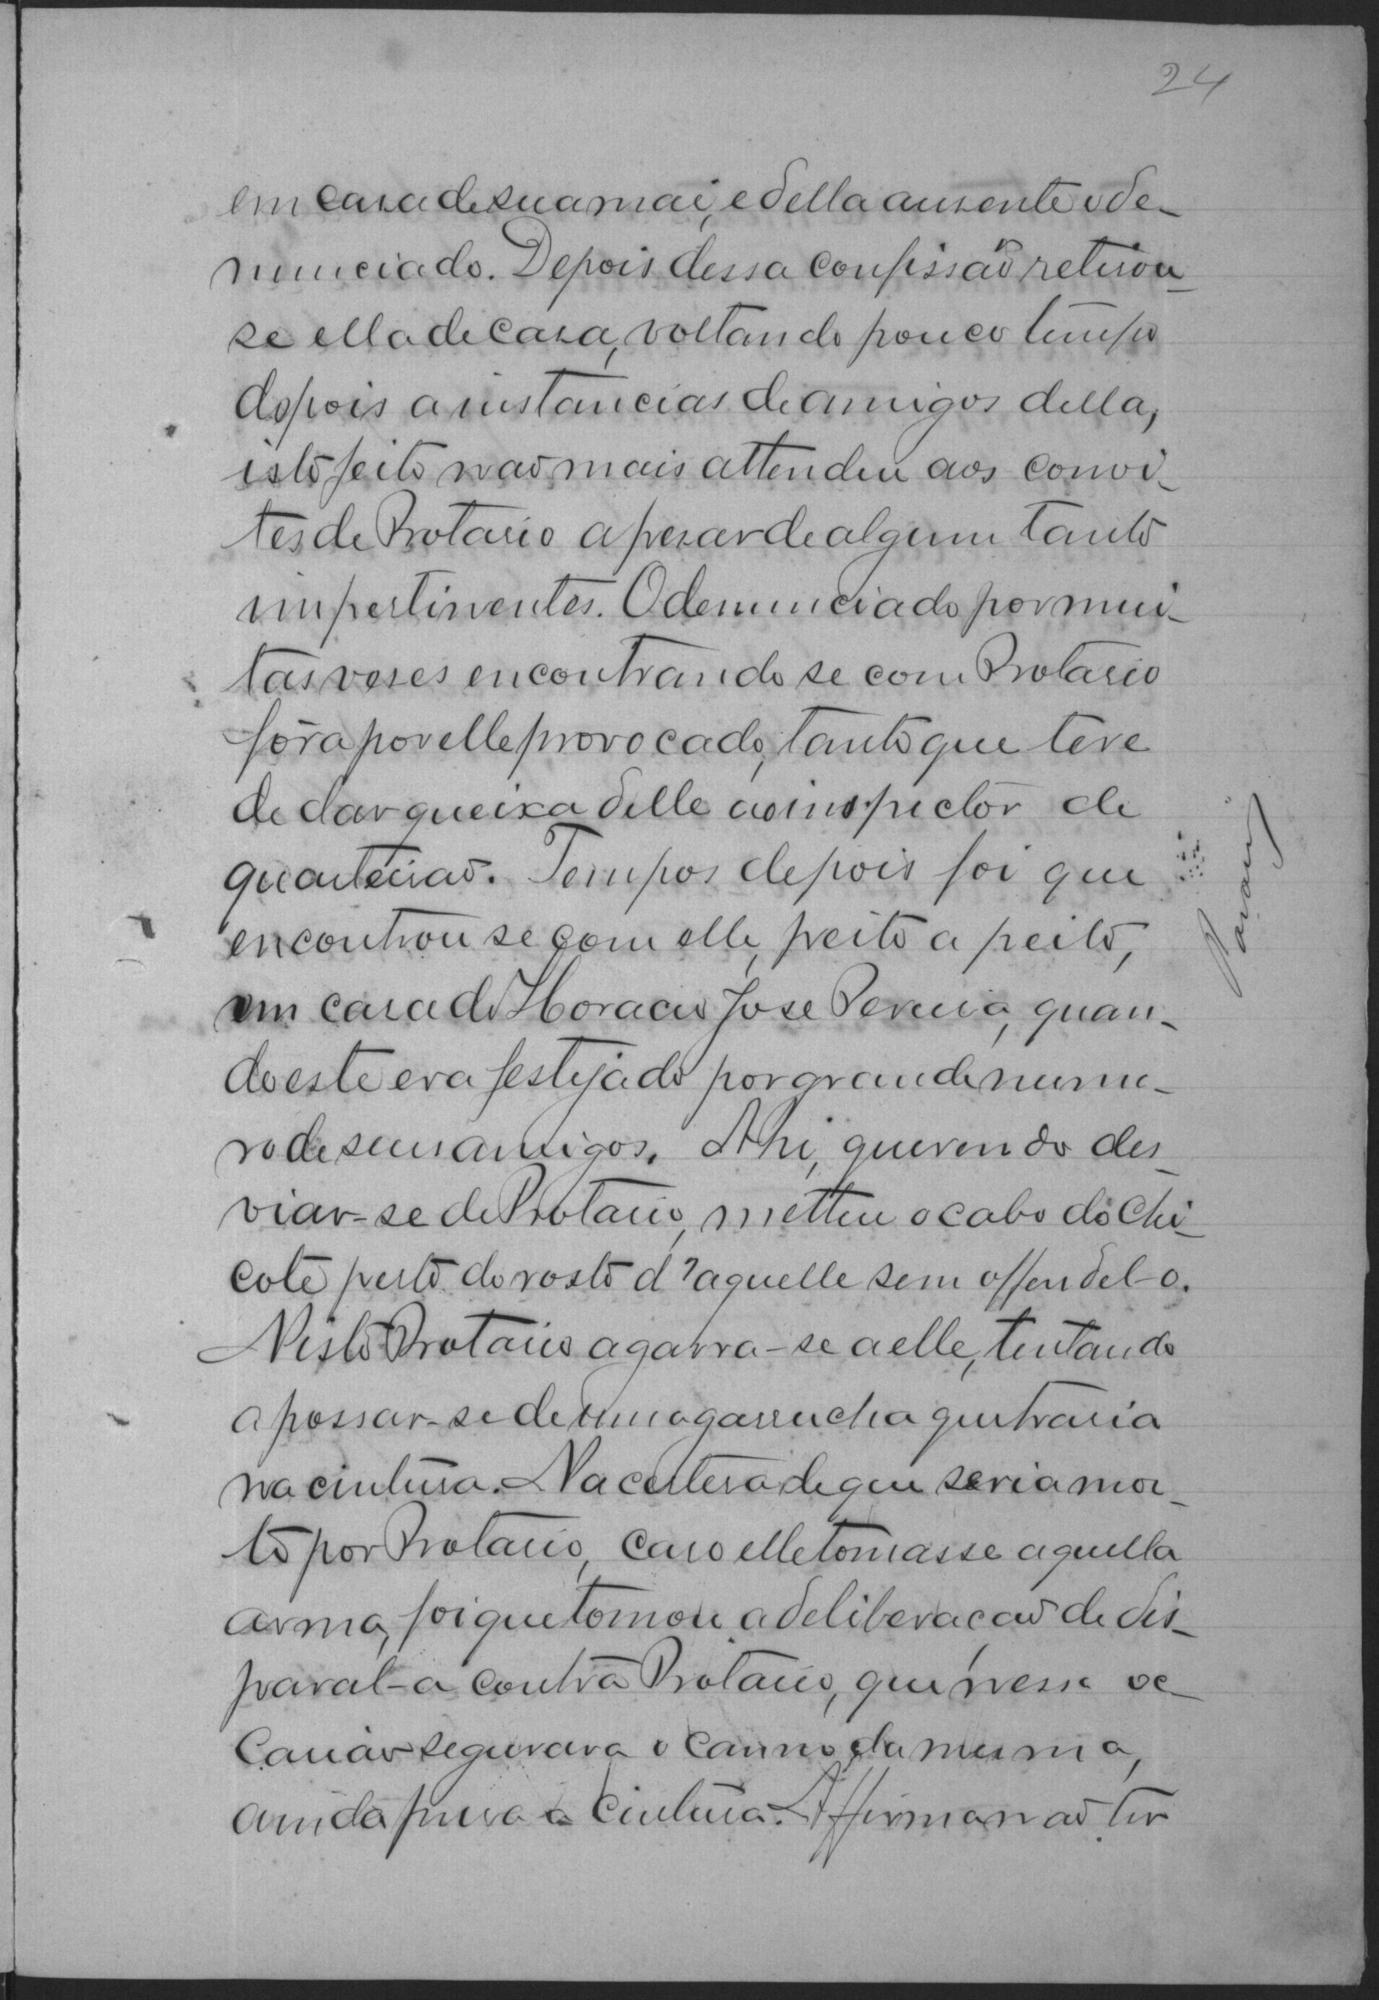 24
em casa de sua mai, e della ausente o de-
nunciado. Depois dessa confissão retirou-
se ella de casa, voltando pouco tempo
depois a instancias de amigos della,
isto feito não mais attendeu aos convi-
tes de Protasio apesar de algum tanto
impertinentes. O denunciado por mui-
tas veses encontrando se com Protasio
fôra por elle provocado, tanto que teve
de dar queixa delle ao inspector de
quarteirão. Tempos depois foi que
encontrou se com elle, peito a peito,
em casa de Horacio Jose Pereira, quan-
do este era festejado por grande nume-
ro de seus amigos. Ahi, querendo des-
viar-se de Protasio, metteu o cabo do chi-
cote perto do rosto d'aquelle sem offendel-o.
Nisto Protasio agarra-se a elle, tentando
apossar-se de uma garrucha que trasia
na cintura. Na certesa de que seria mor-
to por Protasio, caso elle tomasse aquella
arma, foi que tomou a deliberação de dis-
paral-a contra Protasio, que nessa oc-
casião segurara o canno da mesma,
ainda presa a cintura. Affirma não ter